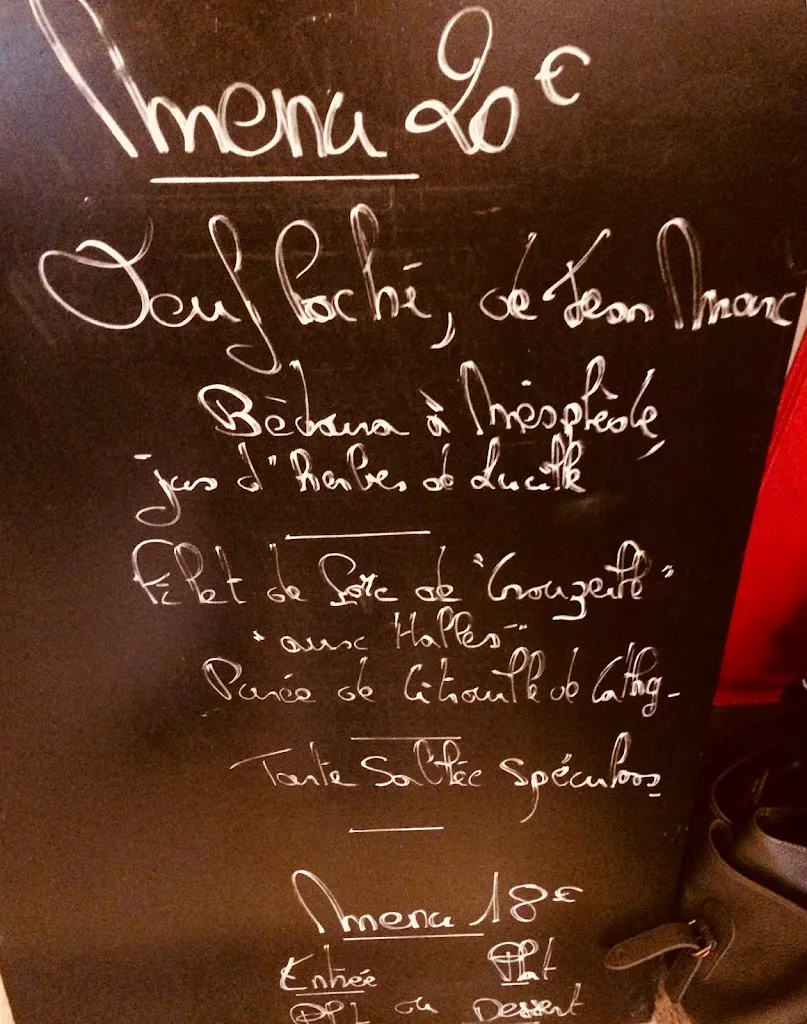 Menu 20€
Oeuf Poché, de Jean Marc
à
jus d'herbes de Lucille
Filet de Porc de "Crouzeille"
"aux Halles"
Purée de Citrouille de Cathy-
Tarte Sablée Spéculoos
Menu 18€
Entrée Plat
ou Dessert